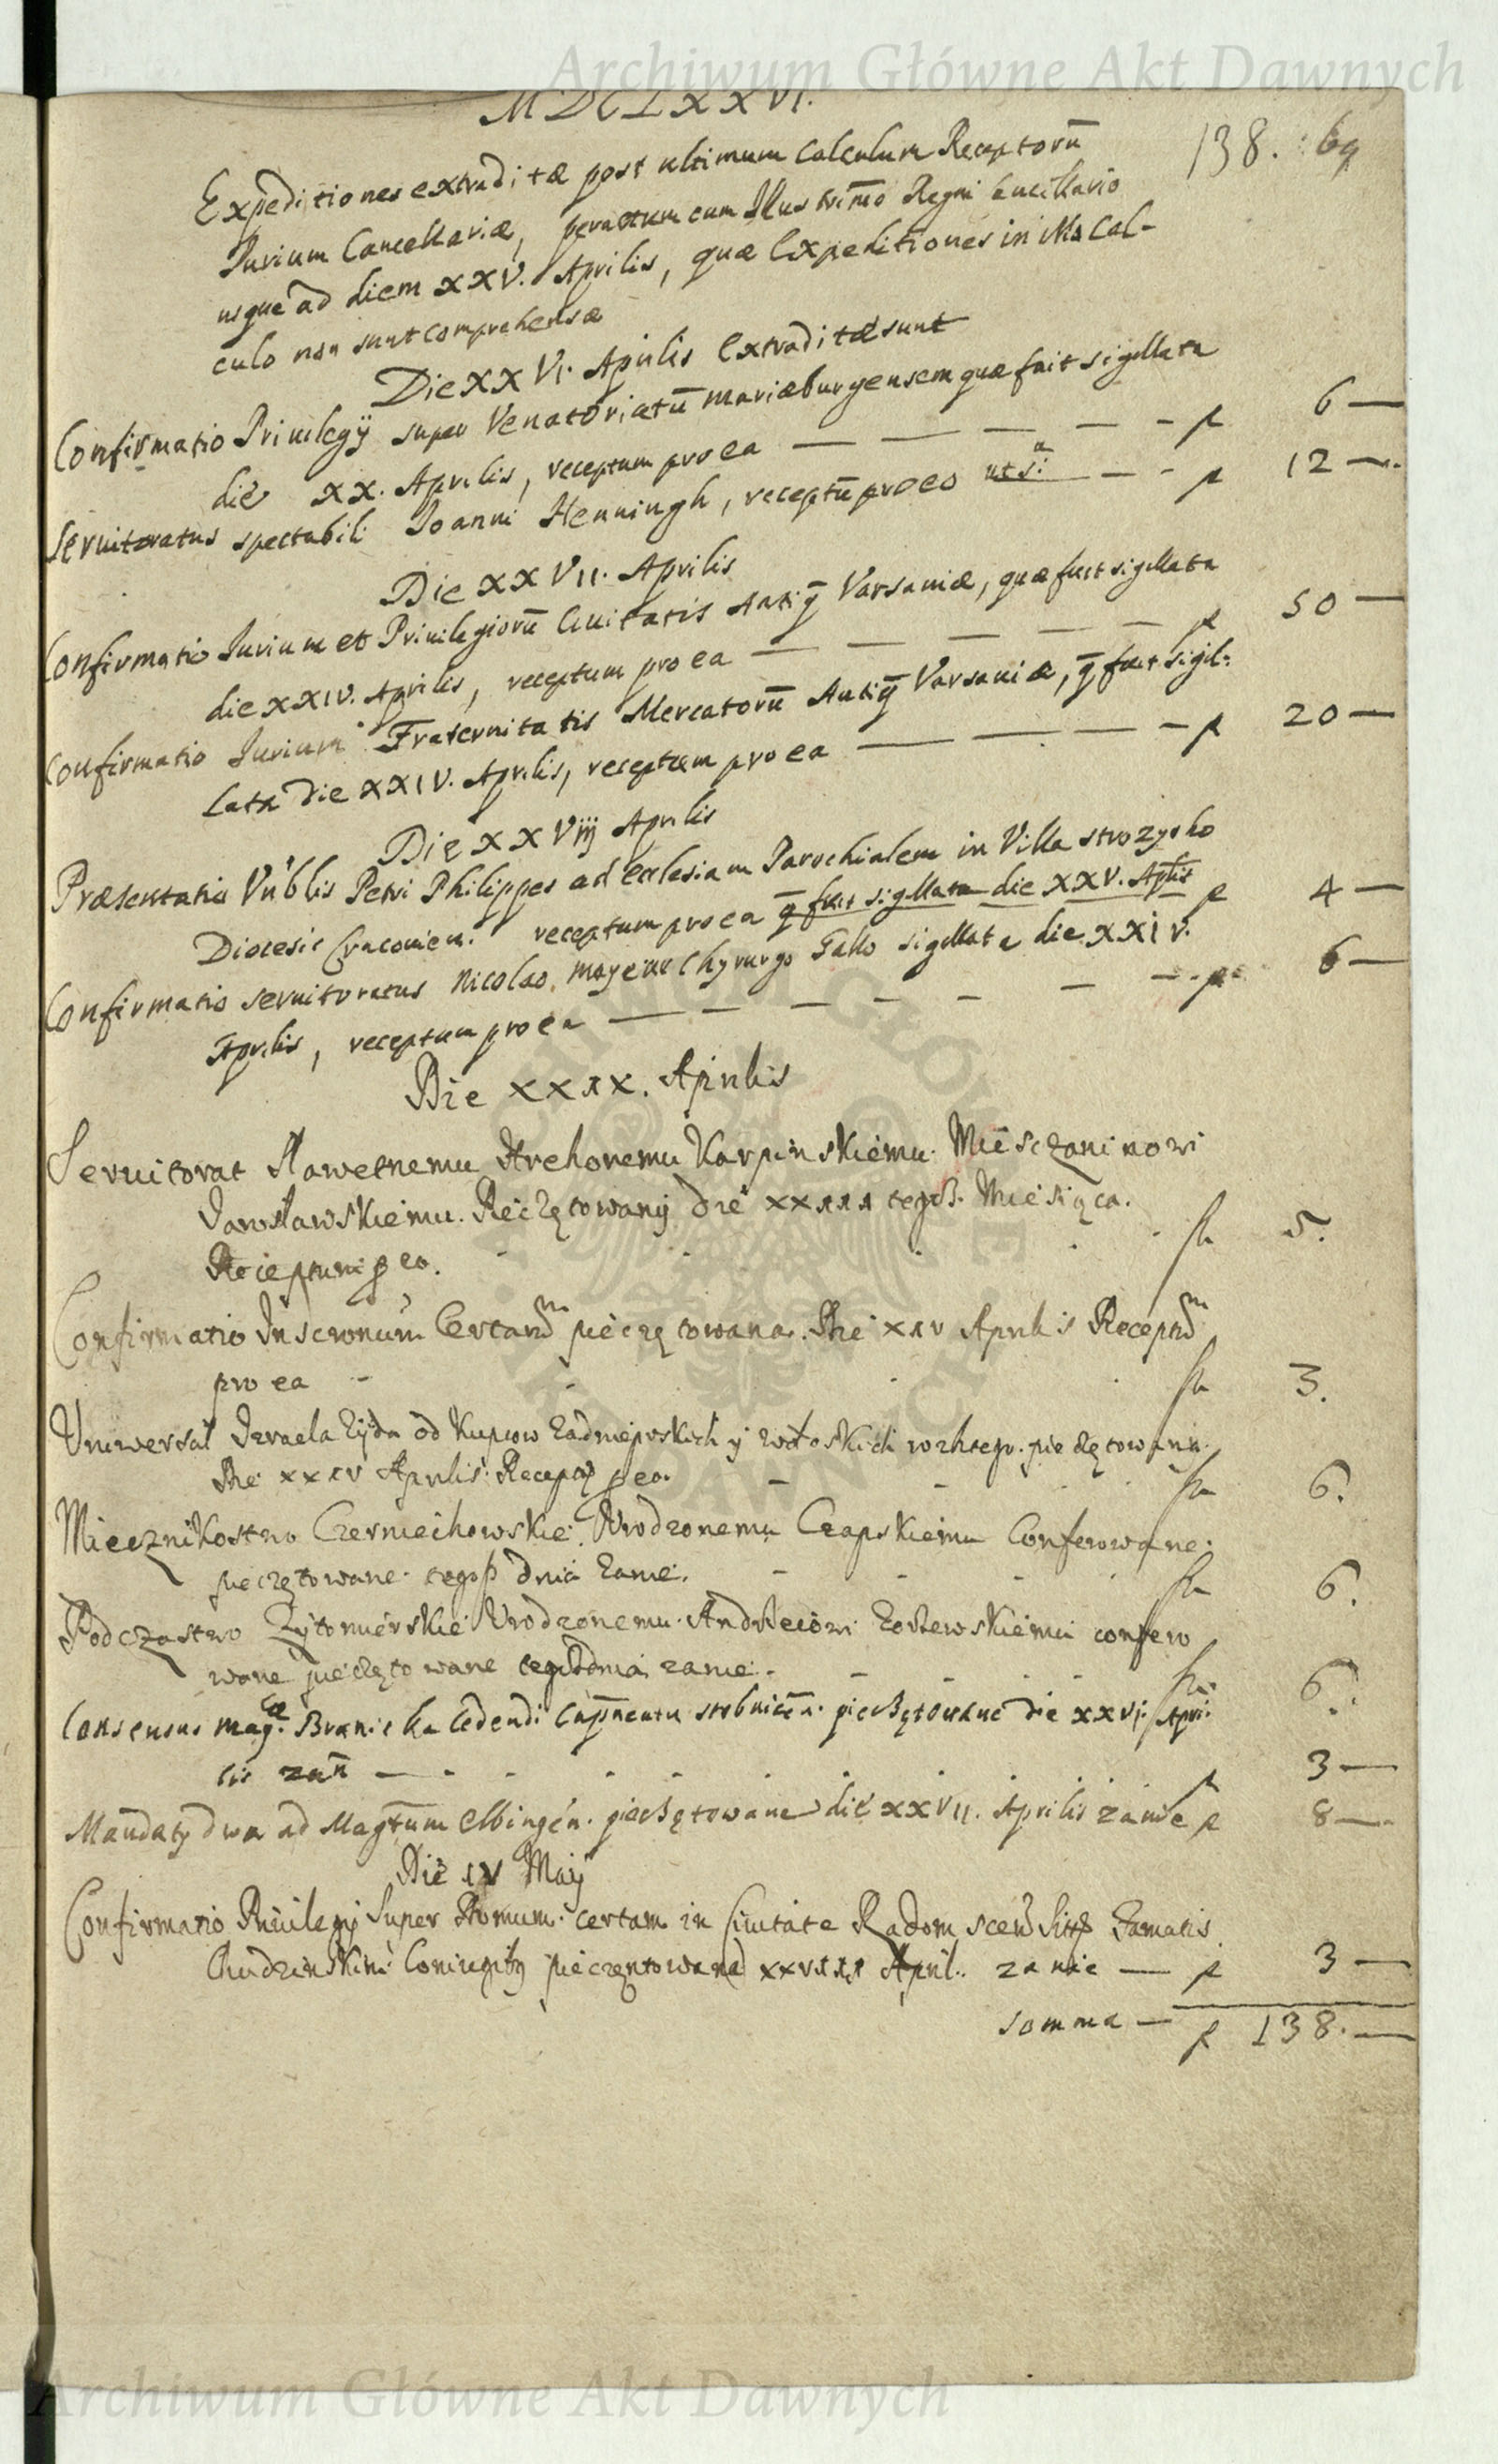 Archiwum Główne Akt Dawnych
MDCLXXVI.
138. 69
Expeditiones extraditæ post ultimum Calculum Receptorũ
Jurium Cancellariæ, peractum cum Illustrimõ Regni Cancellario
usque ad diem XXV. Aprilis, quæ Expeditiones in illo Cal-
culo non sunt comprehensæ
Die XXVI. Aprilis Extraditæ sunt
Confirmatio Priuilegÿ super Venatoriatũ Mariæburgensem quæ fuit sigillata
die XX. Aprilis, receptum pro ea — — — — - f 6 —
Seruitoratus spectabili Joanni Henningh, receptũ pro eo ut s: — - f 12 —
Die XXVII. Aprilis
Confirmatio Jurium et Priuilegiorũ Ciuitatis Antiq̃ Varsauiæ, quæ fuit sigillata
die XXIV. Aprilis, receptum pro ea — — — — — f 50 —
Confirmatio Jurium Fraternitatis Mercatorũ Antiq̃ Varsauiæ, q̃ fuit sigil-
lata die XXIV. Aprilis, receptum pro ea — — — - f 20 —
Die XXViij Aprilis
Præsentatio Petri Philippes ad Ecclesiam Parochialem in Villa strozysko
Diocesis Cracouien. receptum pro ea q̃ fuit sigillata die XXV. Aplis f 4 —
Confirmatio seruitoratus Nicolao Chyrurgo Gallo sigillata die XXIV.
Aprilis, receptum pro ea — — — — — — - f 6 —
Die XXIX. Aprilis
Seruitorat Sławetnemu Karpinskiemu Miesczaninowi
Jarosławskiemu. Pieczętowany die xxiii tegoß Miesiąca.
Receptum p eo. fl 5.
Confirmatio pieczętowana. Die xxv Aprilis
pro ea - fl 3.
Uniwersał Izraela Zyda od Kupcow Zadnieprskich y wołoskich pieczętowany
Die xxiv Aprilis p ea. - fl 6.
Miecznikostwo Czerniechowskie Urodzonemu Czapskiemu Conferowane
pieczętowane tegoß dnia zanie. - fl 6.
Podczastwo Zytomierskie Urodzonemu Andrzeiowi conferо
wane pieczętowane tegoß dnia zanie. - fl 6.
Consensus Branicka Cedendi pieczętowane die XXVI Apri
lis - f 3 —
Mandaty dwa ad Magr̃um Elbingen. pieczętowane die XXVII. Aprilis zanie f 8 —
Die IV Maÿ
Confirmatio Priuilegÿ super Domum certam in Ciuitate Radom
Coniugibus pieczentowana xxviii April. za nie — f 3 —
somma — f 138. —
Archiwum Główne Akt Dawnych